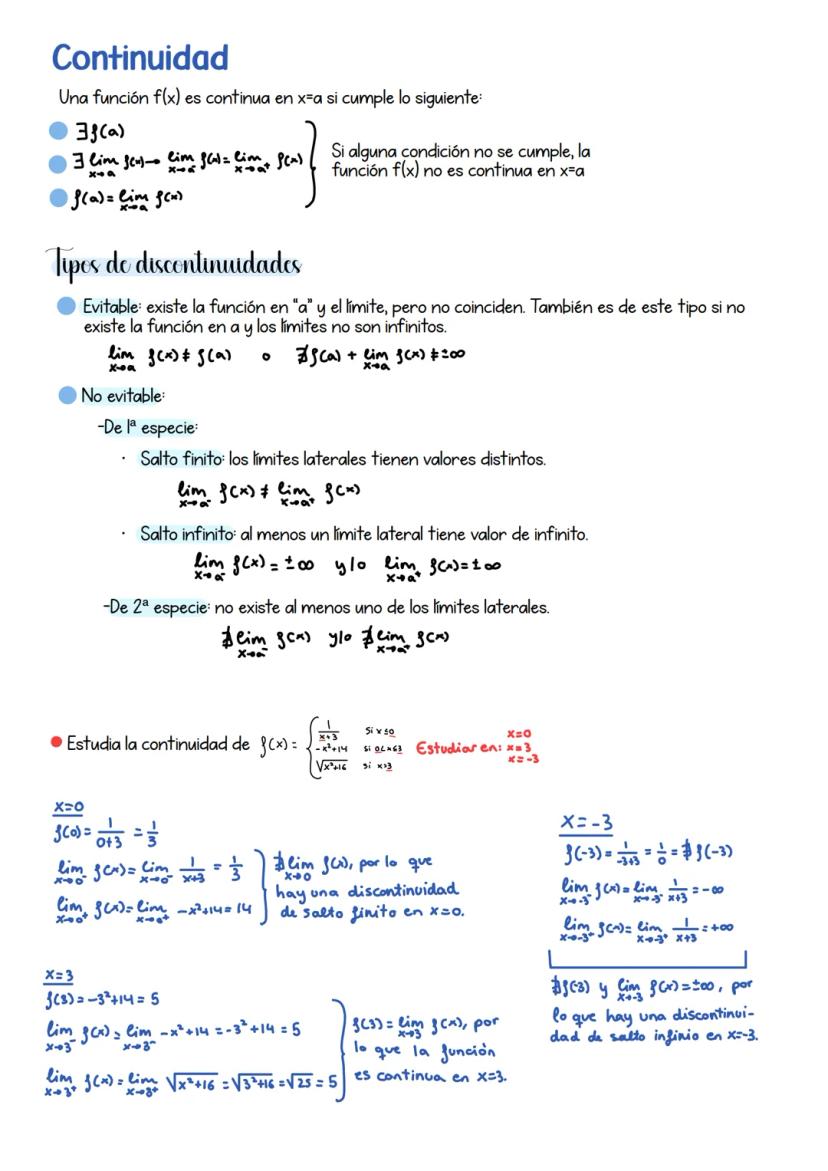 Continuidad
Una función f(x) es continua en x=a si cumple lo siguiente:
∃f(a)
∃ lim x→a f(x) → lim x→a⁻ f(x) = lim x→a⁺ f(x)
f(a) = lim x→a f(x)
Si alguna condición no se cumple, la
función f(x) no es continua en x=a
Tipos de discontinuidades
Evitable: existe la función en "a" y el límite, pero no coinciden. También es de este tipo si no
existe la función en a y los límites no son infinitos.
lim x→a f(x) ≠ f(a) o ∄f(a) + lim x→a f(x) ≠ ±∞
No evitable:
-De 1ª especie:
· Salto finito: los límites laterales tienen valores distintos.
lim x→a⁻ f(x) ≠ lim x→a⁺ f(x)
· Salto infinito: al menos un límite lateral tiene valor de infinito.
lim x→a⁻ f(x) = ±∞ y/o lim x→a⁺ f(x) = ±∞
-De 2ª especie: no existe al menos uno de los límites laterales.
∄ lim x→a⁻ f(x) y/o ∄ lim x→a⁺ f(x)
Estudia la continuidad de f(x) =
1/(x+3) si x≤0
-x²+14 si 0<x≤3
√x²+16 si x>3
Estudiar en: x=0
x=3
x=-3
x=0
f(0) = 1/(0+3) = 1/3
lim x→0⁻ f(x) = lim x→0⁻ 1/(x+3) = 1/3
lim x→0⁺ f(x) = lim x→0⁺ -x²+14 = 14
∄ lim x→0 f(x), por lo que
hay una discontinuidad
de salto finito en x=0.
x=-3
f(-3) = 1/(-3+3) = 1/0 = ∄ f(-3)
lim x→-3⁻ f(x) = lim x→-3⁻ 1/(x+3) = -∞
lim x→-3⁺ f(x) = lim x→-3⁺ 1/(x+3) = +∞
∄f(-3) y lim x→-3 f(x) = ±∞, por
lo que hay una discontinui-
dad de salto infinio en x=-3.
x=3
f(3) = -3²+14 = 5
lim x→3⁻ f(x) = lim x→3⁻ -x²+14 = -3²+14 = 5
lim x→3⁺ f(x) = lim x→3⁺ √x²+16 = √3²+16 = √25 = 5
f(3) = lim x→3 f(x), por
lo que la función
es continua en x=3.